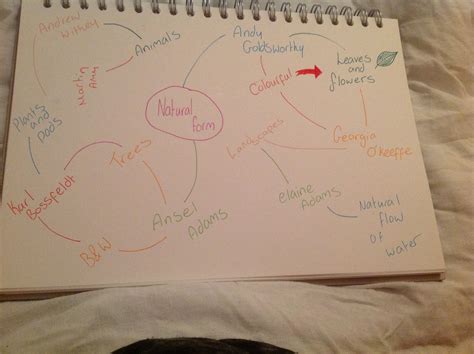 Andrew
Wittey
Animals
Martin
Amy
Plants
and
pods
Karl
Bossfeldt
Trees
B&W
Natural
form
Ansel
Adams
Andy
Goldsworthy
Colourful
Leaves
and
flowers
Landscapes
Georgia
O'keeffe
elaine
Adams
Natural flow
of
water